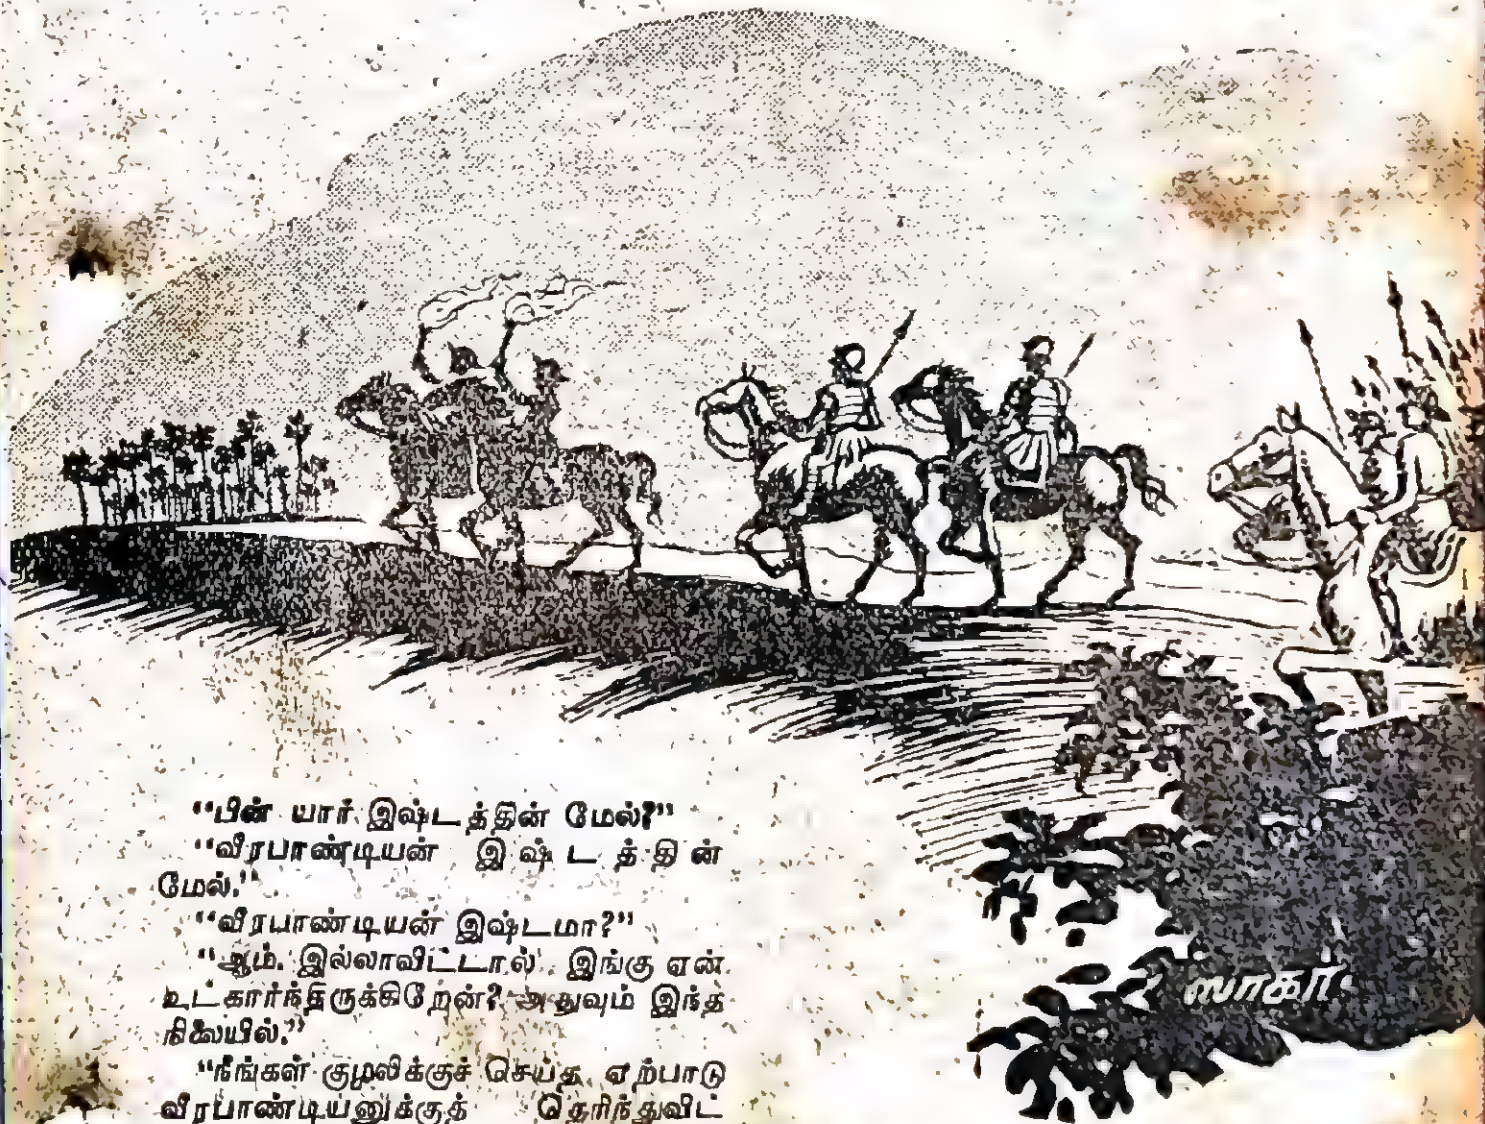 “பின் யார் இஷ்டத்தின் மேல்?”
“வீரபாண்டியன் இஷ்டத்தின்
மேல்.”
“வீரபாண்டியன் இஷ்டமா?”
“ஆம். இல்லாவிட்டால் இங்கு ஏன்
உட்கார்ந்திருக்கிறேன்? அதுவும் இந்த
நிலையில்.”
“நீங்கள் குழலிக்குச் செய்த ஏற்பாடு
வீரபாண்டியனுக்குத் தெரிந்துவிட்
ஸாகர்